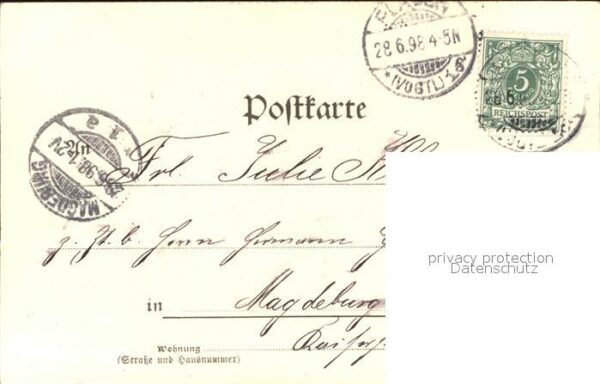 PLAUEN
28.6.98 4-5N
*(VOGTL.) 1g
5
REICHSPOST
28.6
Postkarte
MAGDEBURG
.6.98.1-2V
1 a
An
Frl. Julie
z. Zt. b. Herrn Hermann
privacy protection
Datenschutz
in Magdeburg
Wohnung
(Straße und Hausnummer)